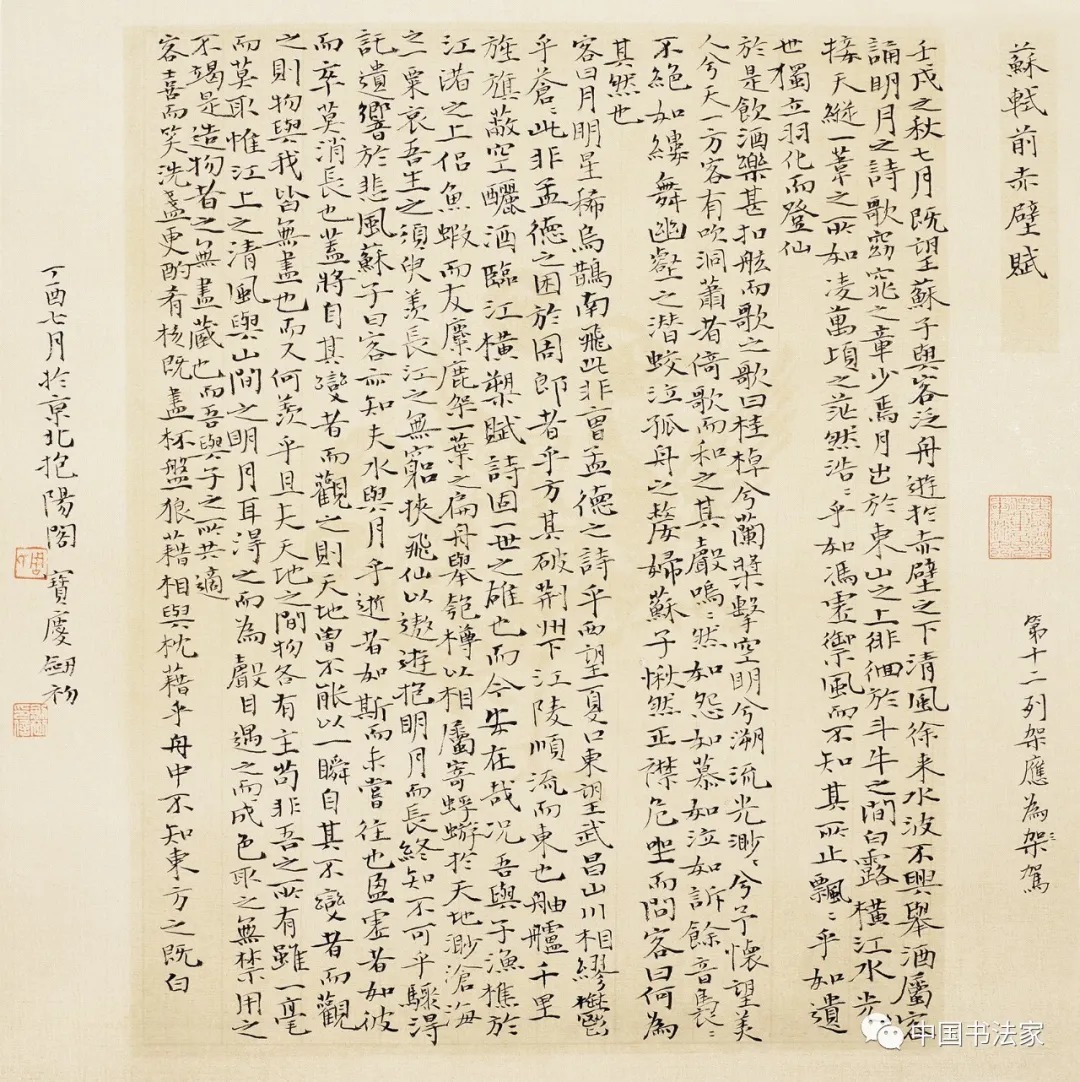 蘇軾前赤壁賦
第十二列架應為架駕
壬戌之秋七月既望蘇子與客泛舟遊於赤壁之下清風徐来水波不興舉酒屬客
誦明月之詩歌窈窕之章少焉月出於東山之上徘徊於斗牛之間白露橫江水光
接天縱一葦之所如凌萬頃之茫然浩〻乎如馮虛御風而不知其所止飄〻乎如遺
世獨立羽化而登仙
於是飲酒樂甚扣舷而歌之歌曰桂棹兮蘭槳擊空明兮溯流光渺〻兮予懷望美
人兮天一方客有吹洞蕭者倚歌而和之其聲嗚〻然如怨如慕如泣如訴餘音裊〻
不絕如縷舞幽壑之潛蛟泣孤舟之嫠婦蘇子愀然正襟危坐而問客曰何為
其然也
客曰月明星稀烏鵲南飛此非曹孟德之詩乎西望夏口東望武昌山川相繆鬱
乎蒼〻此非孟德之困於周郎者乎方其破荊州下江陵順流而東也舳艫千里
旌旗蔽空釃酒臨江橫槊賦詩固一世之雄也而今安在哉況吾與子漁樵於
江渚之上侶魚蝦而友麋鹿架一葉之扁舟舉匏樽以相屬寄蜉蝣於天地渺滄海
之一粟哀吾生之須臾羨長江之無窮挾飛仙以遨遊抱明月而長終知不可乎驟得
託遺響於悲風蘇子曰客亦知夫水與月乎逝者如斯而未嘗往也盈虛者如彼
而卒莫消長也蓋將自其變者而觀之則天地曾不能以一瞬自其不變者而觀
之則物與我皆無盡也而又何羨乎且夫天地之間物各有主苟非吾之所有雖一毫
而莫取惟江上之清風與山間之明月耳得之而為聲目遇之而成色取之無禁用之
不竭是造物者之無盡藏也而吾與子之所共適
客喜而笑洗盞更酌肴核既盡杯盤狼藉相與枕藉乎舟中不知東方之既白
丁酉七月於京北抱陽閣寶慶劍初
中国书法家